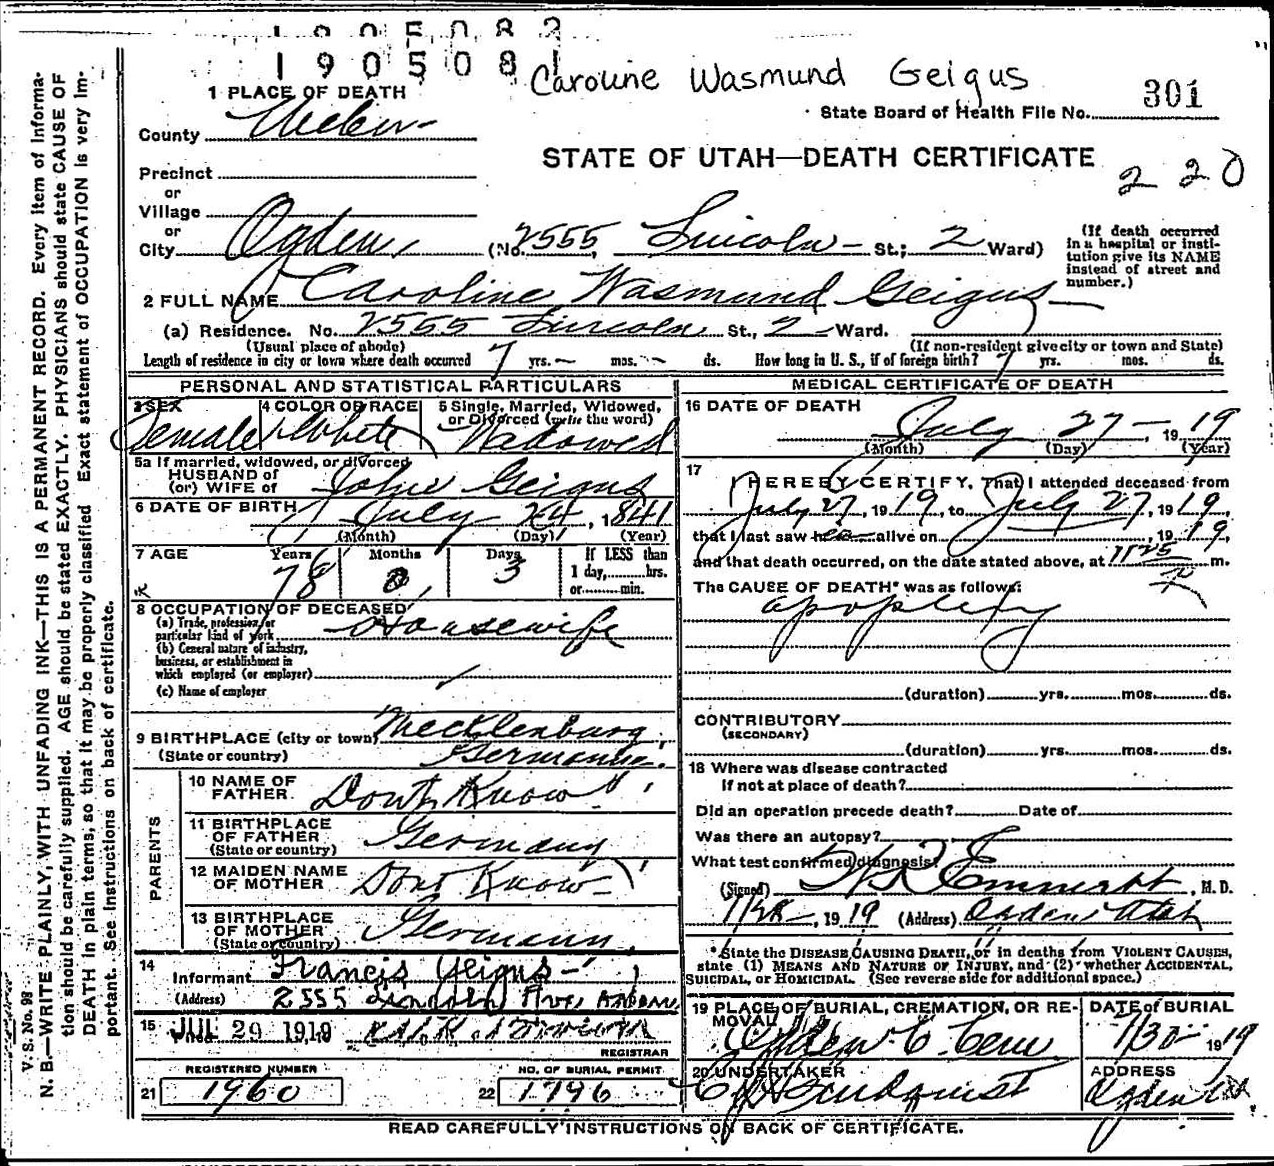 1905082
1905081
Caroline Wasmund Geigus
301
State Board of Health File No.
1 PLACE OF DEATH
County Weber
STATE OF UTAH—DEATH CERTIFICATE
220
Precinct
or
Village
or
City Ogden, (No. 2555 Lincoln St.; 2 Ward)
(If death occurred in a hospital or institution give its NAME instead of street and number.)
2 FULL NAME Caroline Wasmund Geigus
(a) Residence. No. 2555 Lincoln St., 2 Ward.
(Usual place of abode) (If non-resident give city or town and State)
Length of residence in city or town where death occurred 7 yrs. — mos. — ds. How long in U. S., if of foreign birth? 7 yrs. mos. ds.
PERSONAL AND STATISTICAL PARTICULARS
3 SEX Female
4 COLOR OR RACE White
5 Single, Married, Widowed, or Divorced (write the word) Widowed
5a If married, widowed, or divorced
HUSBAND of
(or) WIFE of John Geigus
6 DATE OF BIRTH July 24, 1841
(Month) (Day) (Year)
7 AGE Years 78 Months 0 Days 3
If LESS than
1 day, hrs.
or min.
8 OCCUPATION OF DECEASED
(a) Trade, profession, or particular kind of work Housewife
(b) General nature of industry, business, or establishment in which employed (or employer)
(c) Name of employer
9 BIRTHPLACE (city or town) Mecklenburg
(State or country)
PARENTS
10 NAME OF FATHER Dont Know
11 BIRTHPLACE OF FATHER (State or country) Germany
12 MAIDEN NAME OF MOTHER Dont Know
13 BIRTHPLACE OF MOTHER (State or country) Germany
14
Informant Francis Geigus
(Address) 2555 Lincoln Ave, Ogden
15 Filed JUL 29 1919
REGISTRAR
REGISTERED NUMBER
21 1960
NO. OF BURIAL PERMIT
22 1796
MEDICAL CERTIFICATE OF DEATH
16 DATE OF DEATH
July 27 — 1919
(Month) (Day) (Year)
17 I HEREBY CERTIFY, That I attended deceased from
July 27, 1919, to July 27, 1919,
that I last saw her alive on , 1919,
and that death occurred, on the date stated above, at 1125 m.
The CAUSE OF DEATH* was as follows:
apoplexy
(duration) yrs. mos. ds.
CONTRIBUTORY
(SECONDARY)
(duration) yrs. mos. ds.
18 Where was disease contracted
If not at place of death?
Did an operation precede death? Date of
Was there an autopsy?
What test confirmed diagnosis?
(Signed) , M. D.
7/28—, 1919 (Address) Ogden Utah
*State the DISEASE CAUSING DEATH, or in deaths from VIOLENT CAUSES,
state (1) MEANS AND NATURE OF INJURY, and (2) whether ACCIDENTAL,
SUICIDAL, or HOMICIDAL. (See reverse side for additional space.)
19 PLACE OF BURIAL, CREMATION, OR REMOVAL Ogden C Cem
DATE of BURIAL
7/30— 1919
20 UNDERTAKER
ADDRESS
Ogden
READ CAREFULLY INSTRUCTIONS ON BACK OF CERTIFICATE.
V. S. No. 98
N. B.—WRITE PLAINLY, WITH UNFADING INK—THIS IS A PERMANENT RECORD. Every item of information should be carefully supplied. AGE should be stated EXACTLY. PHYSICIANS should state CAUSE OF DEATH in plain terms, so that it may be properly classified. Exact statement of OCCUPATION is very important. See instructions on back of certificate.